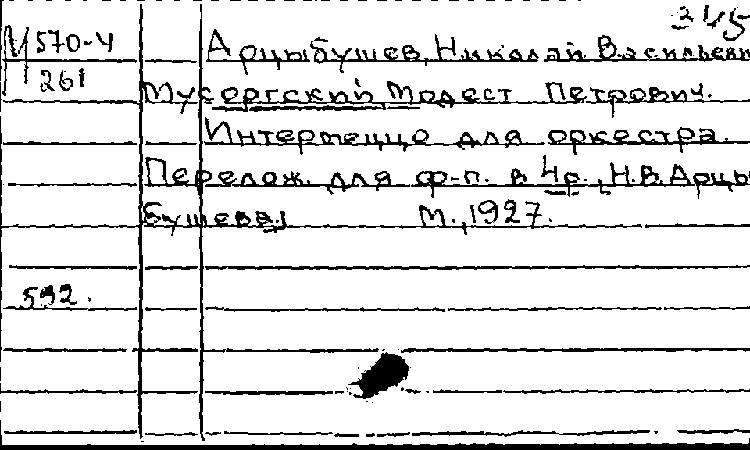 345
М 570-4 Арцыбушев, Николай Васильевич
261 Мусоргский, Модест Петрович.
Интермеццо для оркестра.
Перелож. для ф-п. в 4 р., Н.В. Арцы-
бушева,
М., 1927.
592.